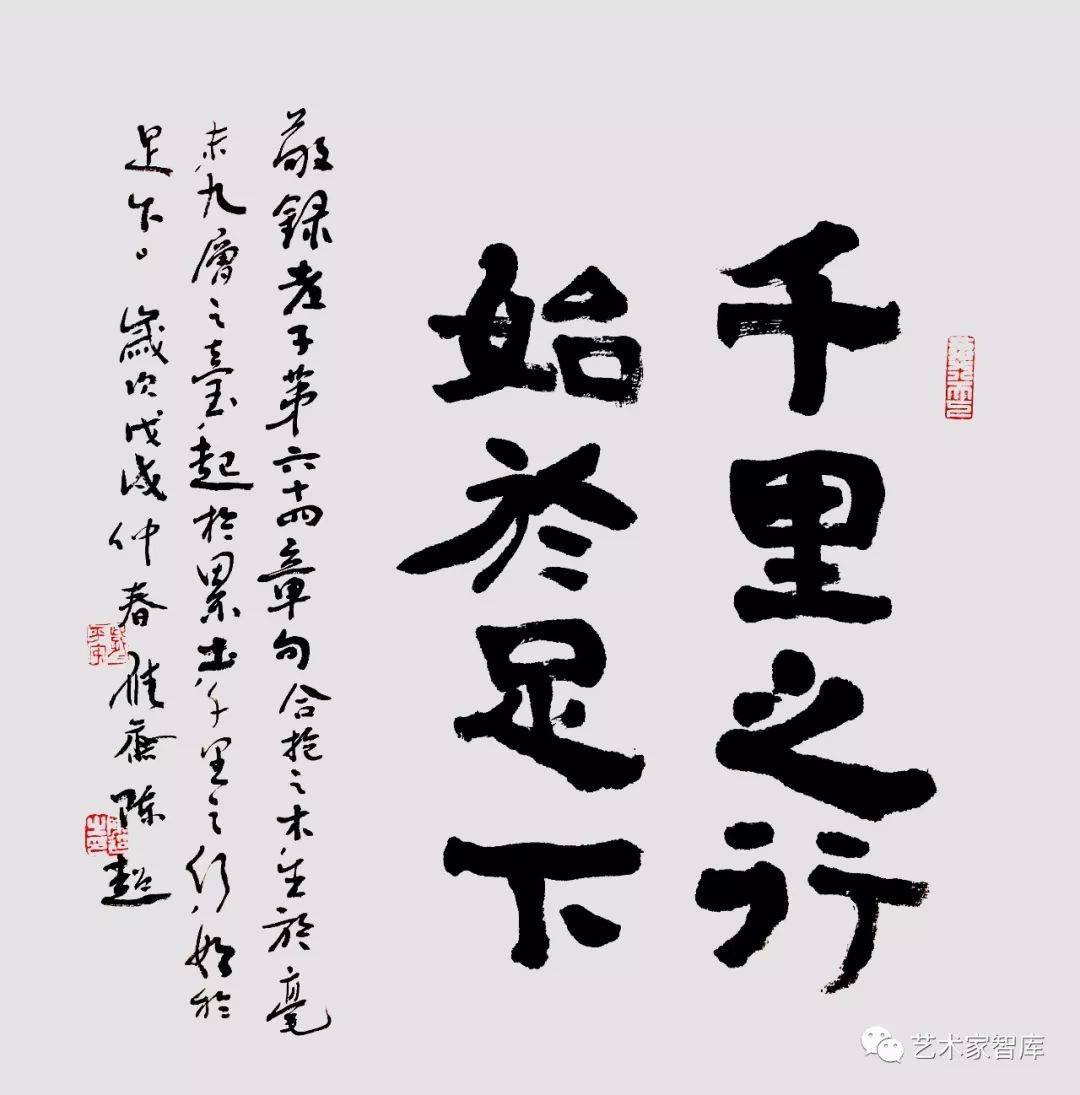 千里之行
始於足下
敬録老子第六十四章句合抱之木生於毫
末九層之臺起於累土千里之行始於
足下。歲次戊戌仲春 齋陈超
艺术家智库